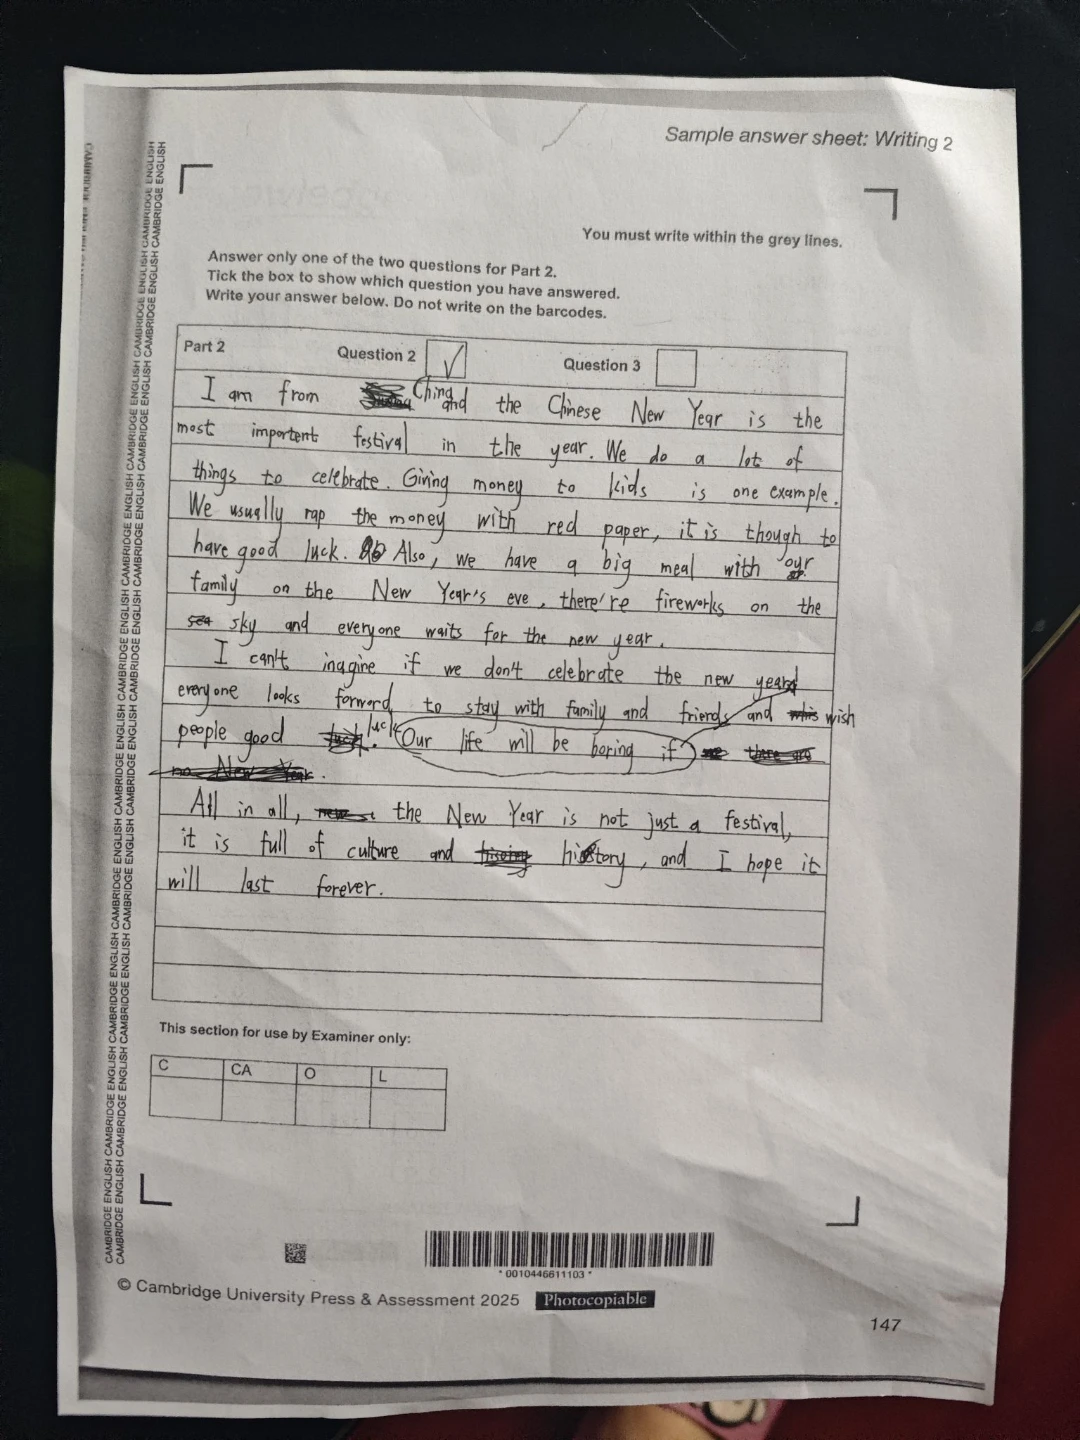 Sample answer sheet: Writing 2
You must write within the grey lines.
Answer only one of the two questions for Part 2.
Tick the box to show which question you have answered.
Write your answer below. Do not write on the barcodes.
Part 2 Question 2 ✓ Question 3
I am from China and the Chinese New Year is the
most importent festival in the year. We do a lot of
things to celebrate. Giving money to kids is one example.
We usually rap the money with red paper, it is though to
have good luck. Also, we have a big meal with our
family on the New Year's eve, there're fireworks on the
sky and everyone waits for the new year.
I can't inagine if we don't celebrate the new year
everyone looks forward to stay with family and friends and wish
people good luck. Our life will be boring if
All in all, the New Year is not just a festival,
it is full of culture and history, and I hope it
will last forever.
This section for use by Examiner only:
C CA O L
CAMBRIDGE ENGLISH CAMBRIDGE ENGLISH CAMBRIDGE ENGLISH CAMBRIDGE ENGLISH CAMBRIDGE ENGLISH CAMBRIDGE ENGLISH CAMBRIDGE ENGLISH
CAMBRIDGE ENGLISH CAMBRIDGE ENGLISH CAMBRIDGE ENGLISH CAMBRIDGE ENGLISH CAMBRIDGE ENGLISH CAMBRIDGE ENGLISH CAMBRIDGE ENGLISH
* 0010446611103 *
© Cambridge University Press & Assessment 2025 Photocopiable
147